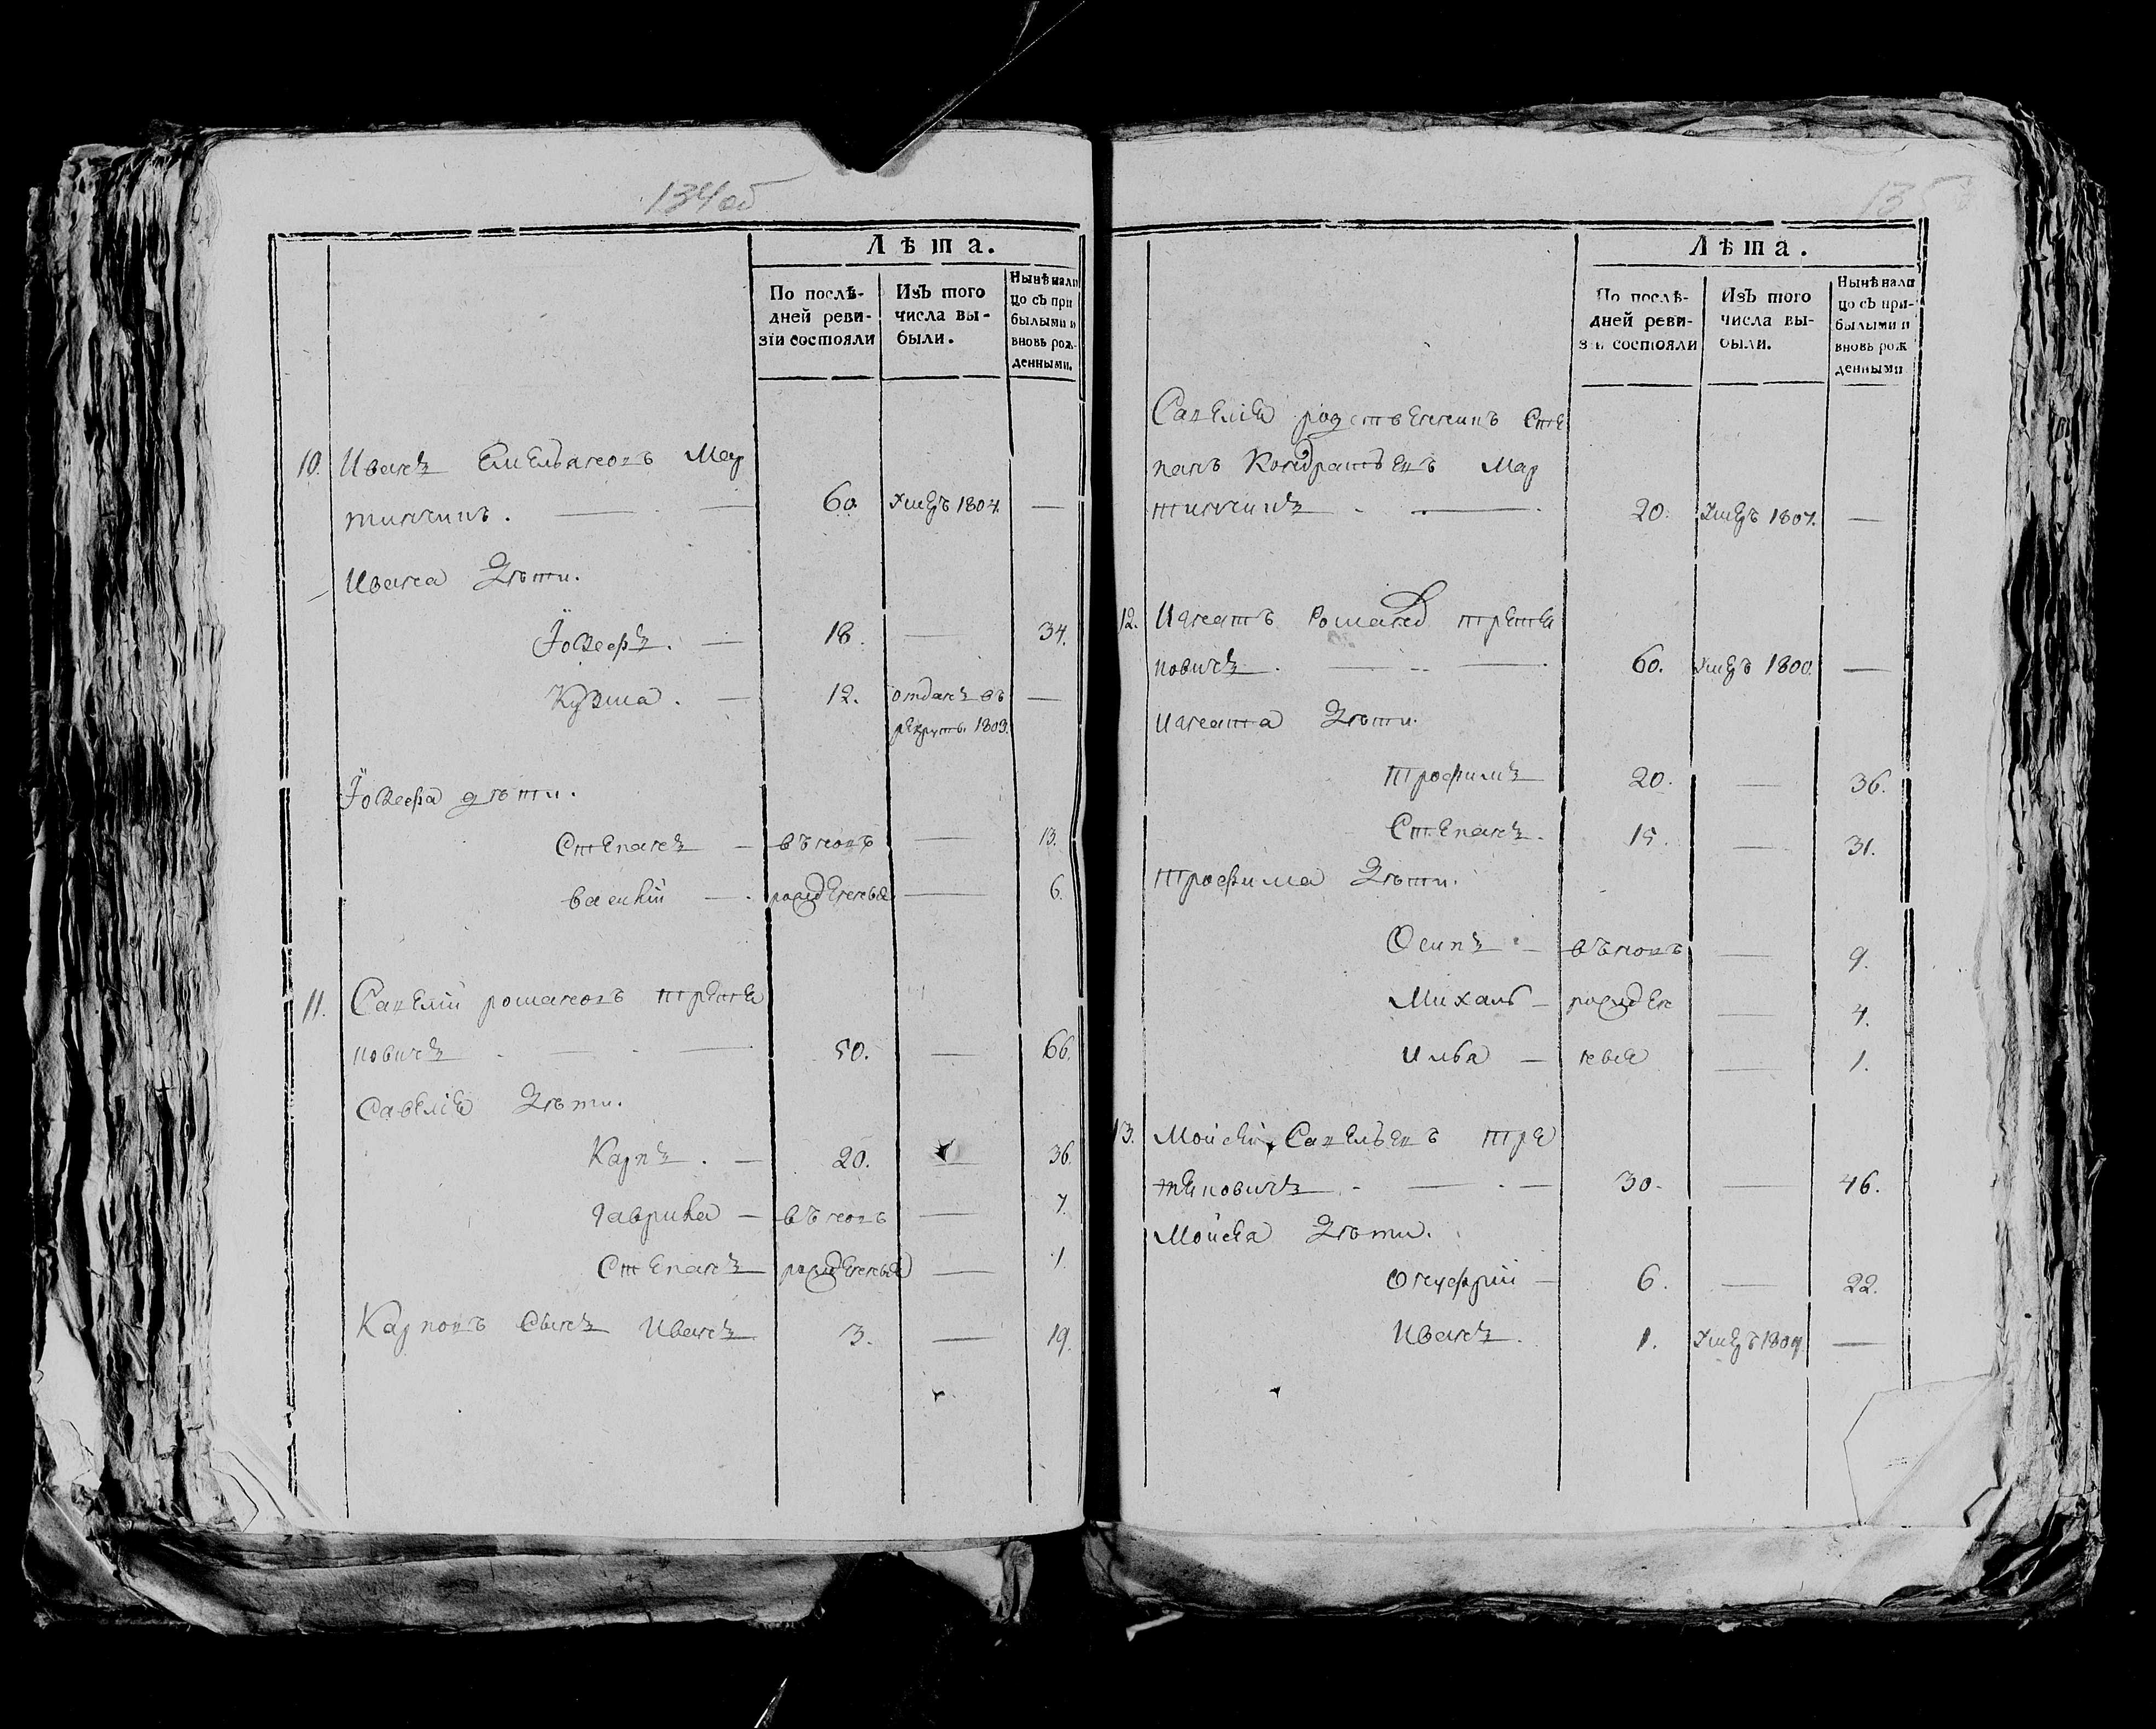 134об
Лѣта.
По послѣ-
дней реви-
зіи состояли
Изъ того
числа вы-
были.
Нынѣ нали
цо съ при
былыми и
вновь рож-
денными.
10. Иванъ Емельяновъ Мар
тинчикъ. — — 60. Умеръ 1804. —
Ивана Дѣти.
Іозеѳъ. — 18. — 34.
Кузма. — 12. отданъ въ —
рекрутъ. 1803.
Іозефа дѣти.
Степанъ — въновъ — 13.
василій — рожденные — 6.
11. Савелій романовъ трете
новичъ — 50. — 66.
Савелія Дѣти.
Карпъ. — 20. — 36.
гаврила — въновъ — 7.
Степанъ — рожденные — 1.
Карповъ Сынъ Иванъ 3. — 19.
135
Лѣта.
По послѣ-
дней реви-
зіи состояли
Изъ того
числа вы-
были.
Нынѣ нали
цо съ при-
былыми и
вновь рож
денными
Савелія родственникъ Сте
панъ Кондратьевъ Мар
тинчикъ — 20. Умеръ 1807. —
12. Игнатъ Романов трете
новичъ. — — 60. Умеръ 1800. —
игната Дѣти.
трофимъ 20. — 36.
Степанъ. 15. — 31.
трофима Дѣти.
Осипъ — въновъ — 9.
Михаилъ — рожден — 4.
илья — ные — 1.
13. Мойсей Савельевъ тре
теновичъ — — 30. — 46.
Мойсея Дѣти.
Онуфрій — 6. — 22.
Иванъ. 1. Умеръ 1809. —